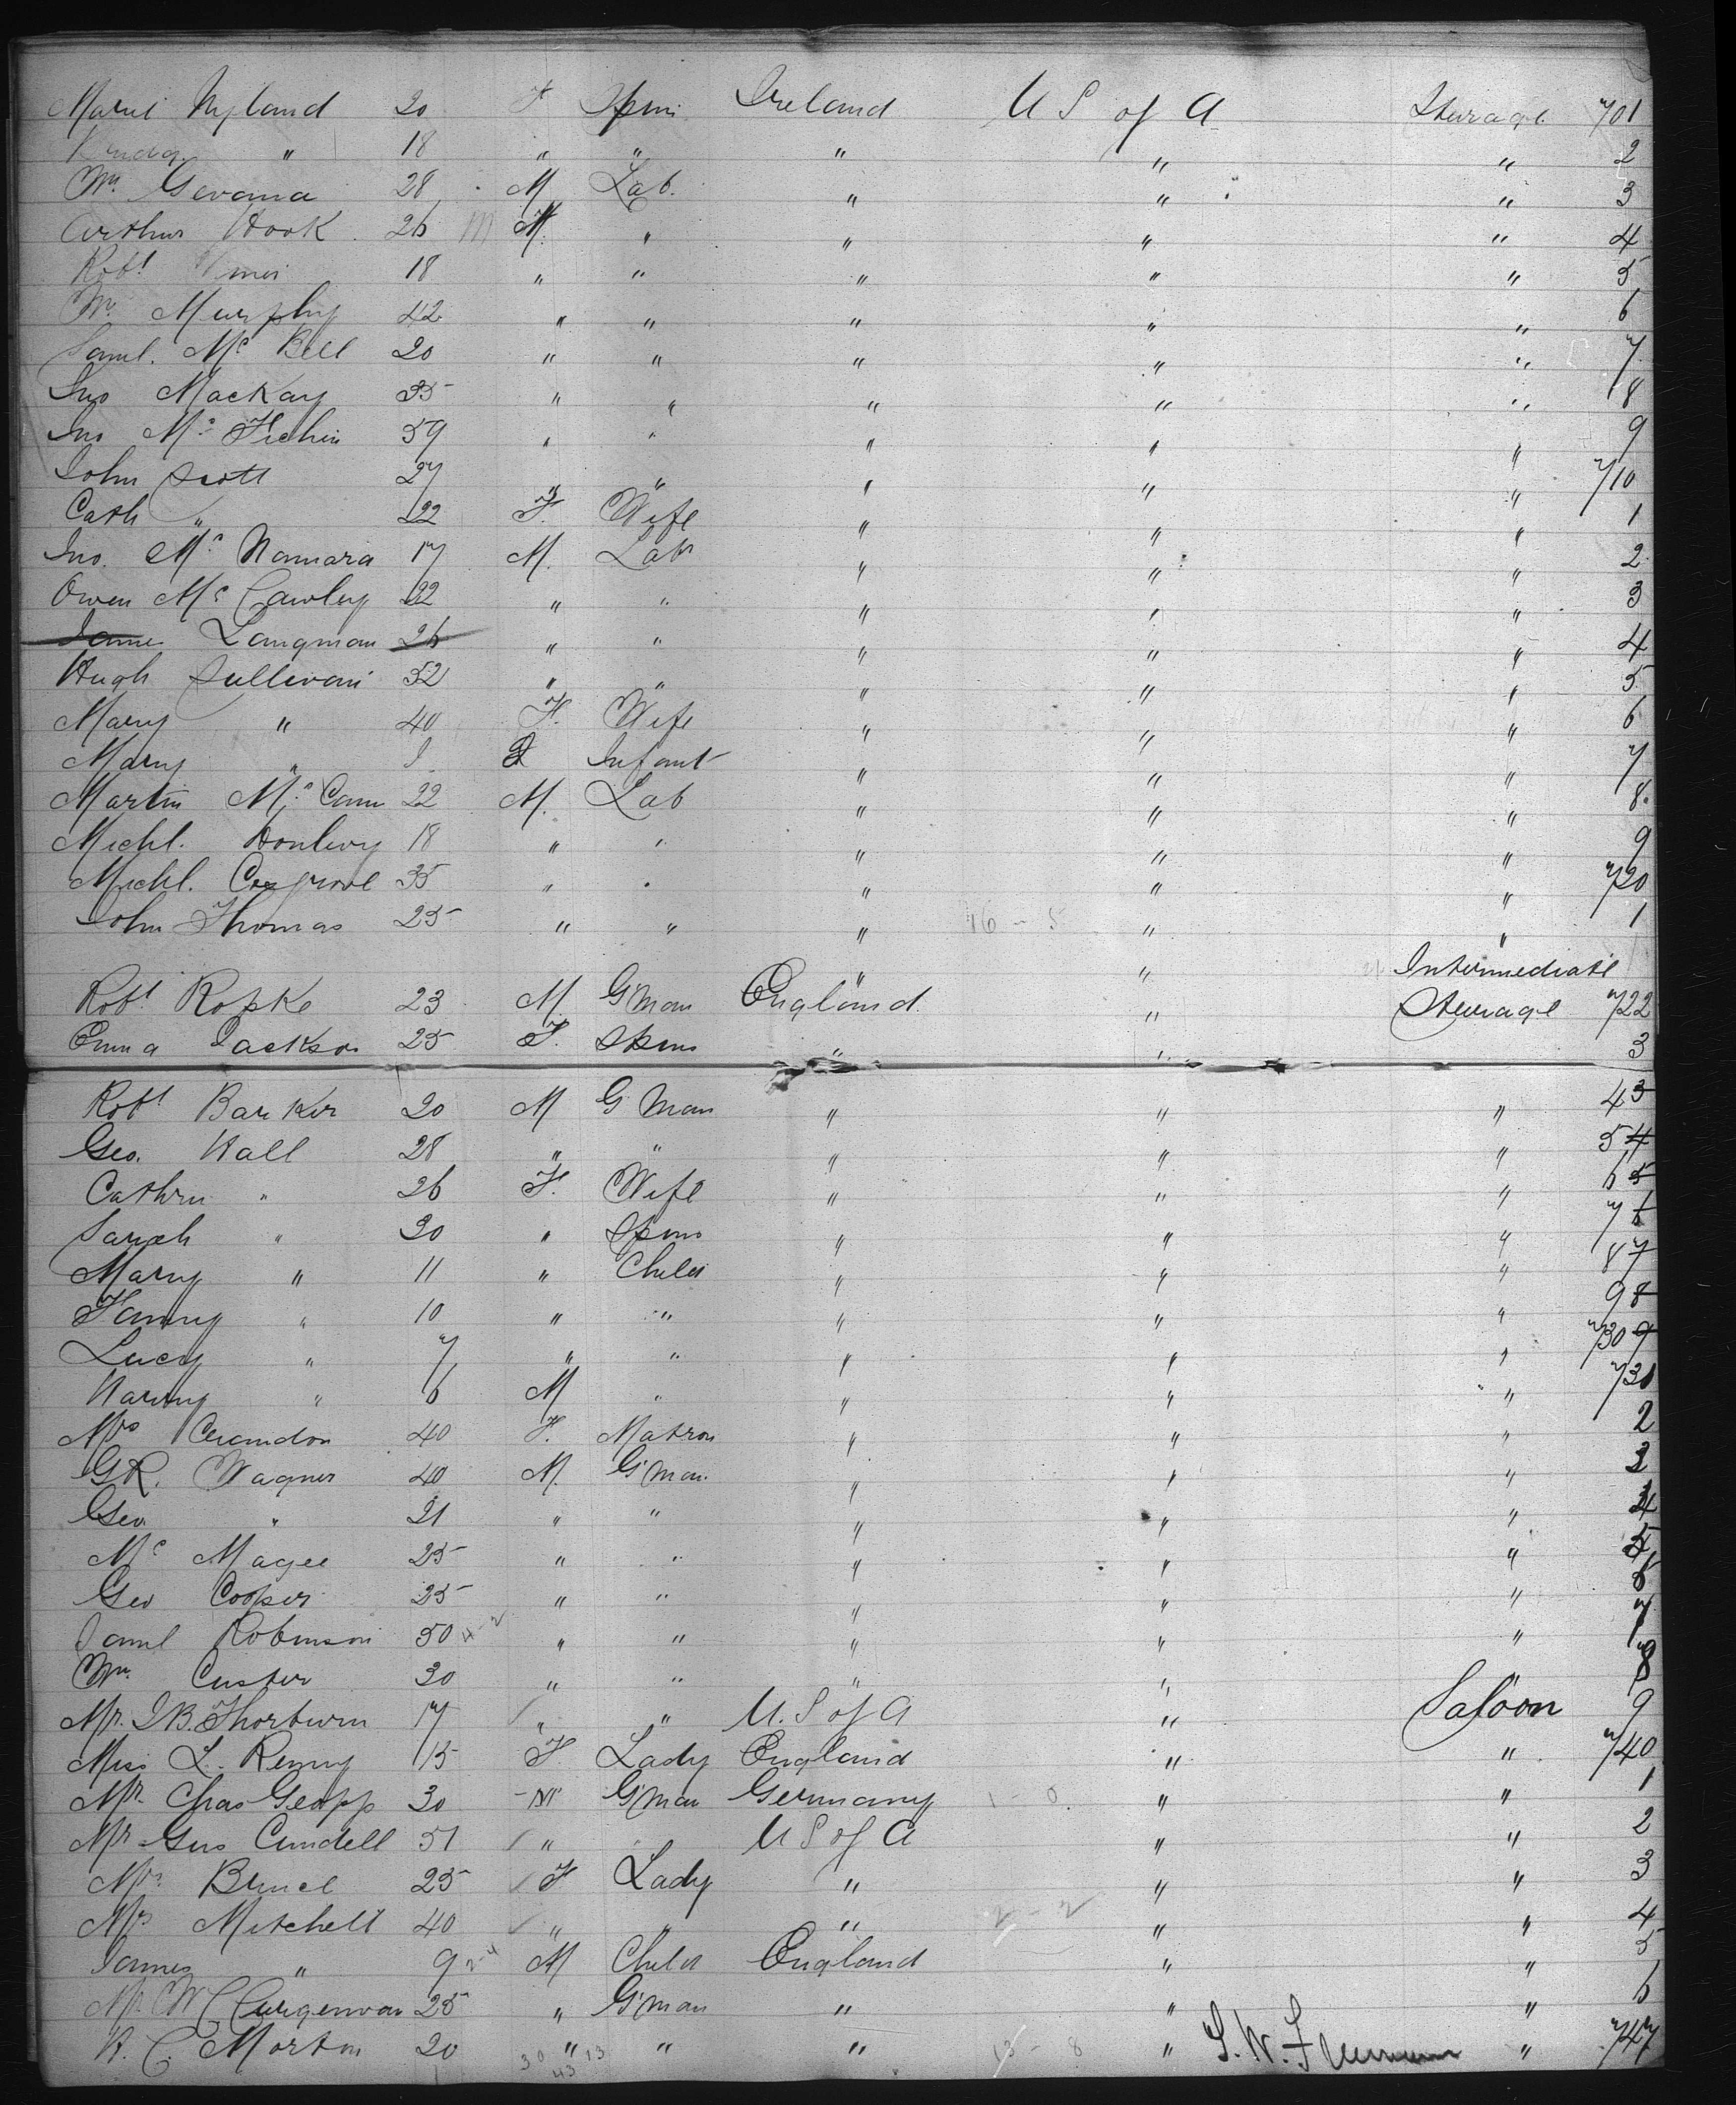 Nyland 20 F Spin Ireland U S of A Steerage 701
" 18 " " " " " 2
Wm 28 M Lab. " " " 3
Arthur Hook 26 M " " " " 4
Robt 18 " " " " " 5
Wm Murphy 42 " " " " " 6
Saml. Mc Bell 20 " " " " " 7
Jno Mackay 35 " " " " " 8
Jno 59 " " " " " 9
John Scott 27 " " " " " 710
Cath " 22 F. Wife " " " 1
Jno. Mc Namara 17 M. Labr " " " 2
Owen Mc Cawley 22 " " " " " 3
James Langman 26 " " " " " 4
Hugh Sullivan 52 " " " " " 5
Mary " 40 F. Wife " " " 6
Mary " Infant " " " 7
Martin Mc Cann 22 M. Lab " " " 8
Michl. 18 " " " " " 9
Michl. Cosgrove 35 " " " " " 720
John Thomas 25 " " " 16 - 5 " " 1
" " Intermediate
Robt Ropke 23 M G'man England " Steerage 722
Emma Jackson 25 F. Spins " " 3
Robt Barker 20 M G Man " " " 4 3
Geo. Hall 28 " " " " " 5 4
Cathrn " 26 F. Wife " " " 6 5
Sarah " 30 " Spins " " " 7 6
Mary " 11 " Child " " " 8 7
Fanny " 10 " " " " " 9 8
Lucy " 7 " " " " " 730 9
Harry " 6 M " " " " 731
Mrs 40 F. Matron " " " 2
G R. Wagner 40 M. G'man. " " " 3
Geo " 21 " " " " " 4
Mc Magee 25 " " " " " 5
Geo Cooper 25 " " " " " 6
Saml Robinson 50 4-2 " " " " " 7
Wm Custer 30 " " " " " 8
Mr. J B. Thorburn 17 " " U. S of A " Saloon 9
Miss L. Renny 15 F Lady England " " 740
Mr. Chas Geapp 30 M G'man Germany 1 - 0 " " 1
Mr Cundell 51 " " U S of A " " 2
Mrs Bruce 25 F Lady " " " 3
Mrs Mitchell 40 " " " 2 - 2 " " 4
James " 9 M Child England " " 5
Mr. W C Curgenvan 25 " G'man " " " 6
C. Morton 20 " " " 13 - 8 " " 747
30 13
43